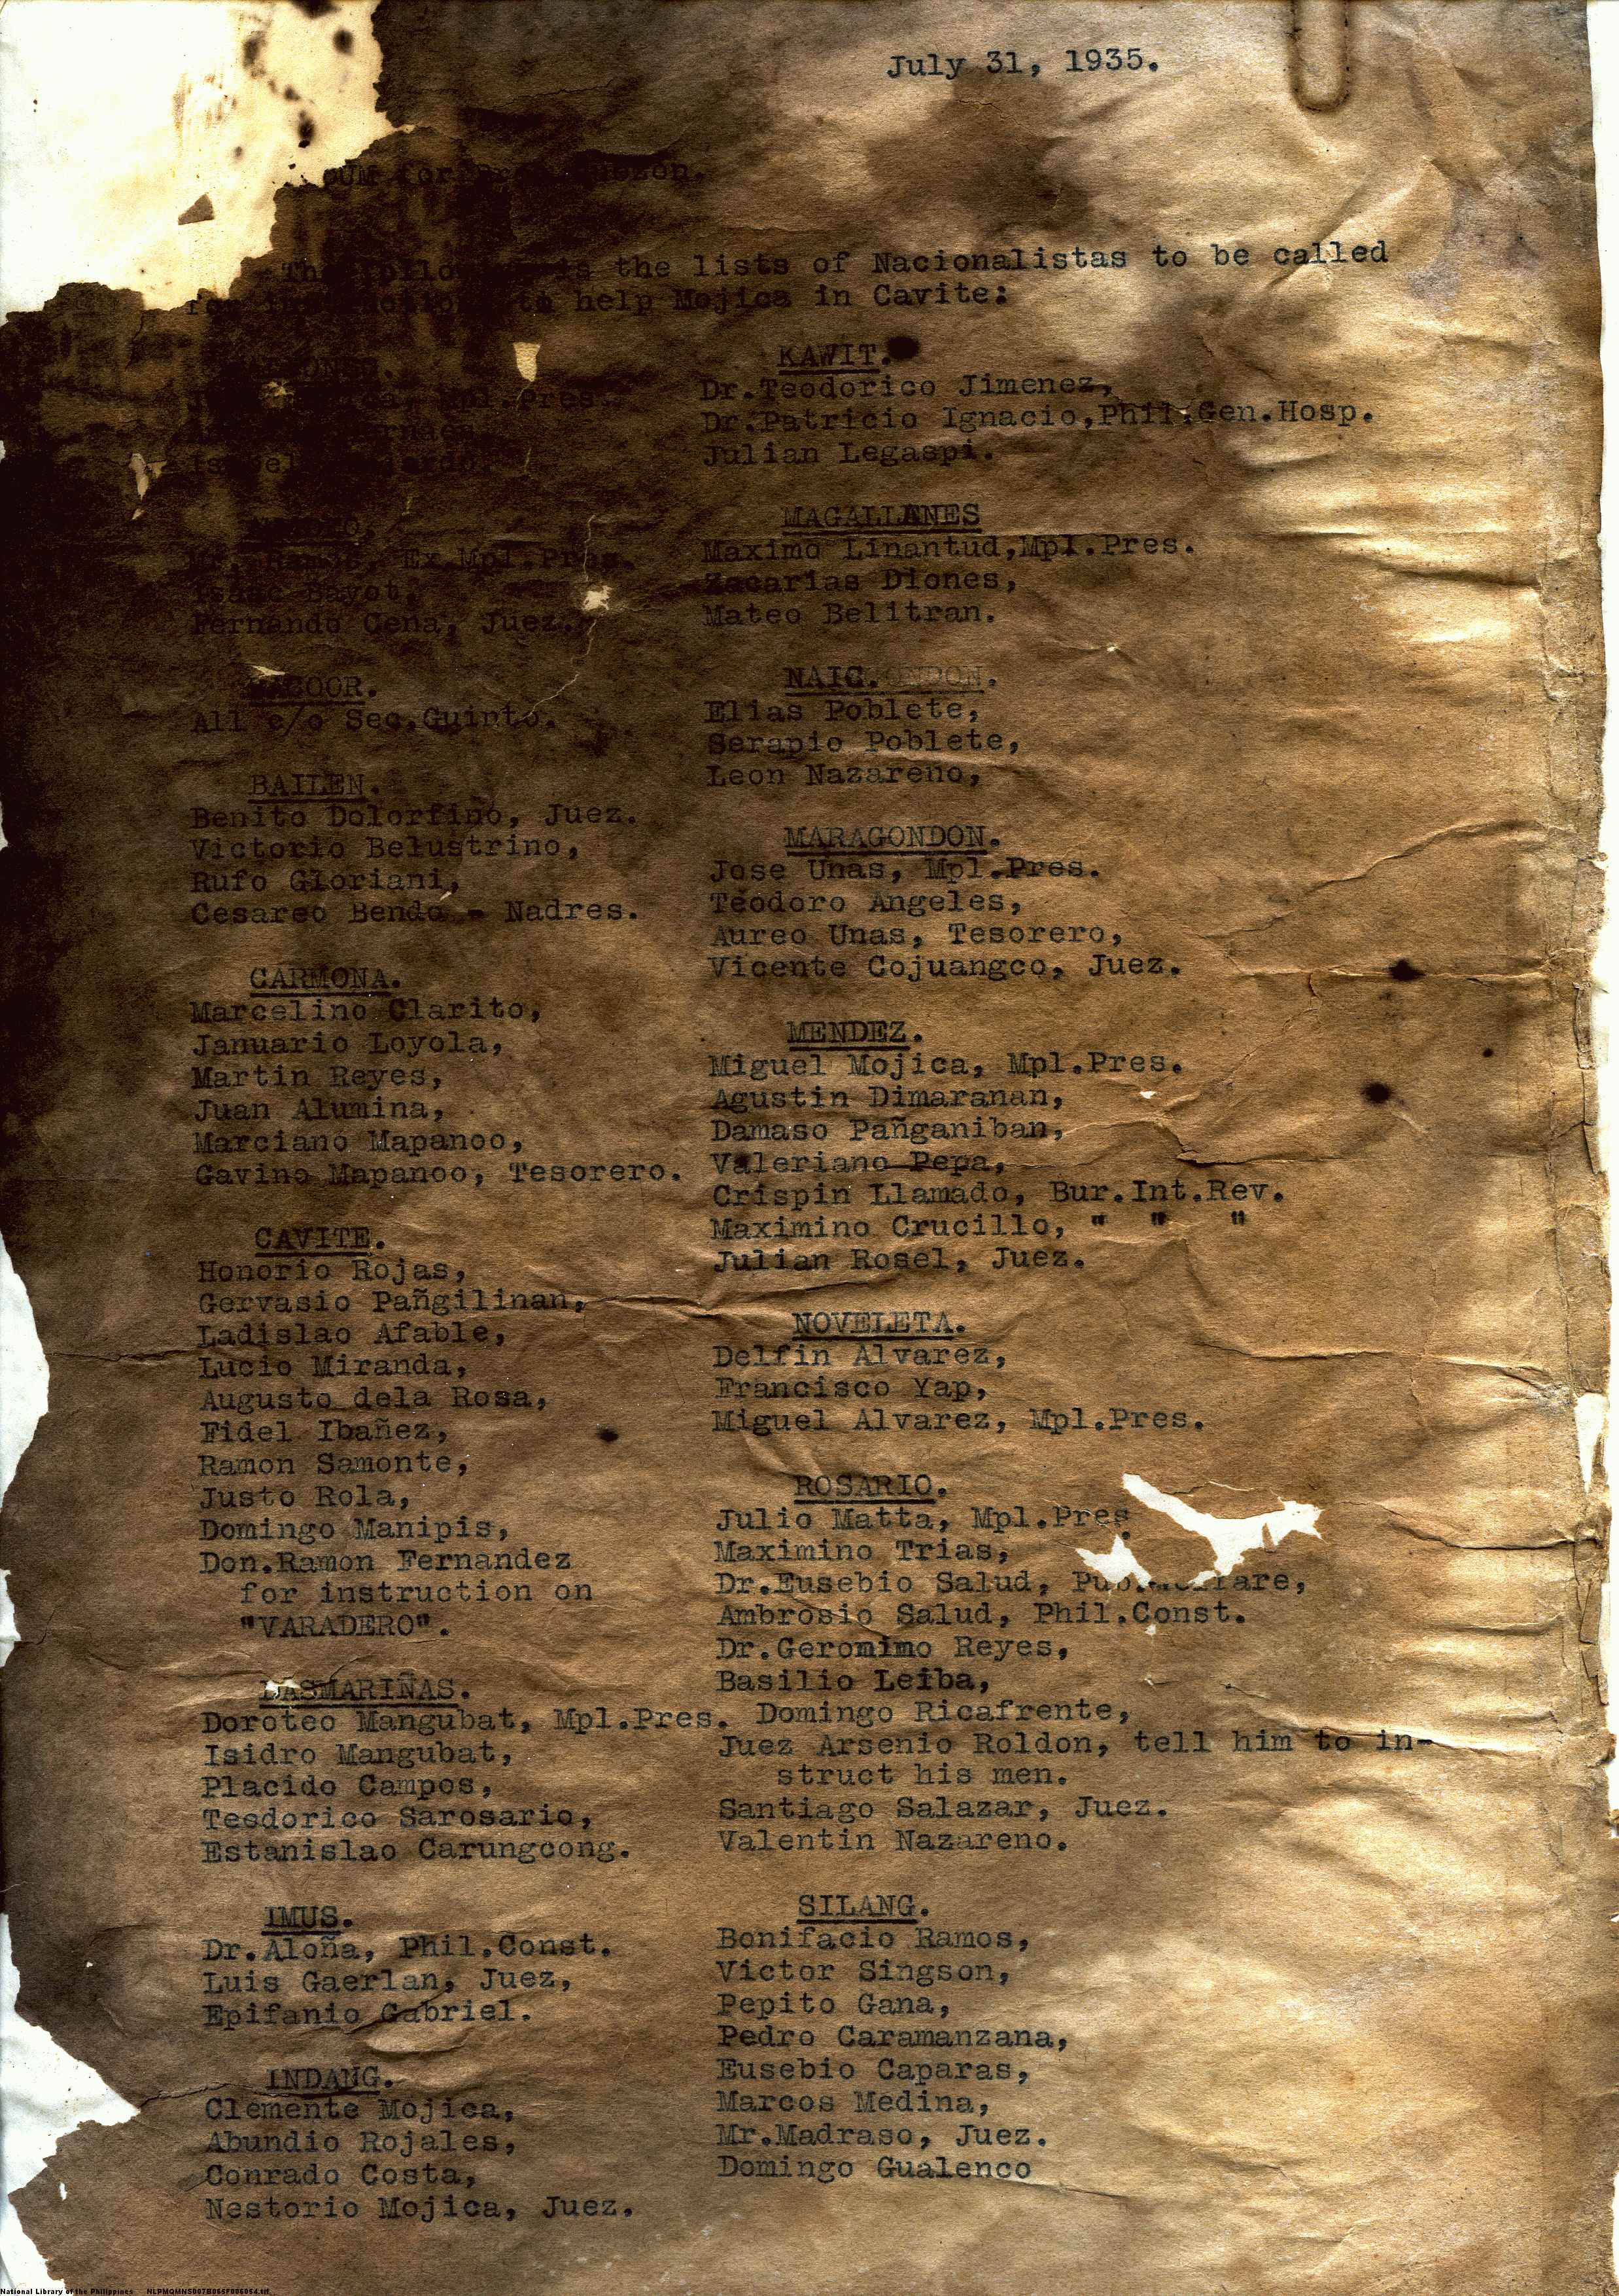 July 31, 1935.
for Quezon.
is the lists of Nacionalistas to be called
to help Mojica in Cavite:
Mpl.Pres.
Ex.Mpl.Pres.
Isaac Bayot,
Fernando Cena, Juez.
BACOOR.
All c/o Sec.Guinto.
BAILEN.
Benito Dolorfino, Juez.
Victorio Belustrino,
Rufo Gloriani,
Cesareo Bendo - Nadres.
CARMONA.
Marcelino Clarito,
Januario Loyola,
Martin Reyes,
Juan Alumina,
Marciano Mapanoo,
Gavino Mapanoo, Tesorero.
CAVITE.
Honorio Rojas,
Gervasio Pañgilinan,
Ladislao Afable,
Lucio Miranda,
Augusto dela Rosa,
Fidel Ibañez,
Ramon Samonte,
Justo Rola,
Domingo Manipis,
Don.Ramon Fernandez
for instruction on
"VARADERO".
DASMARIÑAS.
Doroteo Mangubat, Mpl.Pres.
Isidro Mangubat,
Placido Campos,
Teodorico Sarosario,
Estanislao Carungcong.
IMUS.
Dr.Aloña, Phil.Const.
Luis Gaerlan, Juez,
Epifanio Gabriel.
INDANG.
Clemente Mojica,
Abundio Rojales,
Conrado Costa,
Nestorio Mojica, Juez.
KAWIT.
Dr.Teodorico Jimenez,
Dr.Patricio Ignacio,Phil.Gen.Hosp.
Julian Legaspi.
MAGALLANES
Maximo Linantud,Mpl.Pres.
Zacarias Diones,
Mateo Belitran.
NAIC.
Elias Poblete,
Serapio Poblete,
Leon Nazareno,
MARAGONDON.
Jose Unas, Mpl.Pres.
Teodoro Angeles,
Aureo Unas, Tesorero,
Vicente Cojuangco, Juez.
MENDEZ.
Miguel Mojica, Mpl.Pres.
Agustin Dimaranan,
Damaso Pañganiban,
Valeriano Pepa,
Crispin Llamado, Bur.Int.Rev.
Maximino Crucillo, " " "
Julian Rosel, Juez.
NOVELETA.
Delfin Alvarez,
Francisco Yap,
Miguel Alvarez, Mpl.Pres.
ROSARIO.
Julio Matta, Mpl.Pres.
Maximino Trias,
Dr.Eusebio Salud,
Ambrosio Salud, Phil.Const.
Dr.Geronimo Reyes,
Basilio Leiba,
Domingo Ricafrente,
Juez Arsenio Roldon, tell him to in-
struct his men.
Santiago Salazar, Juez.
Valentin Nazareno.
SILANG.
Bonifacio Ramos,
Victor Singson,
Pepito Gana,
Pedro Caramanzana,
Eusebio Caparas,
Marcos Medina,
Mr.Madraso, Juez.
Domingo Gualenco
National Library of the Philippines